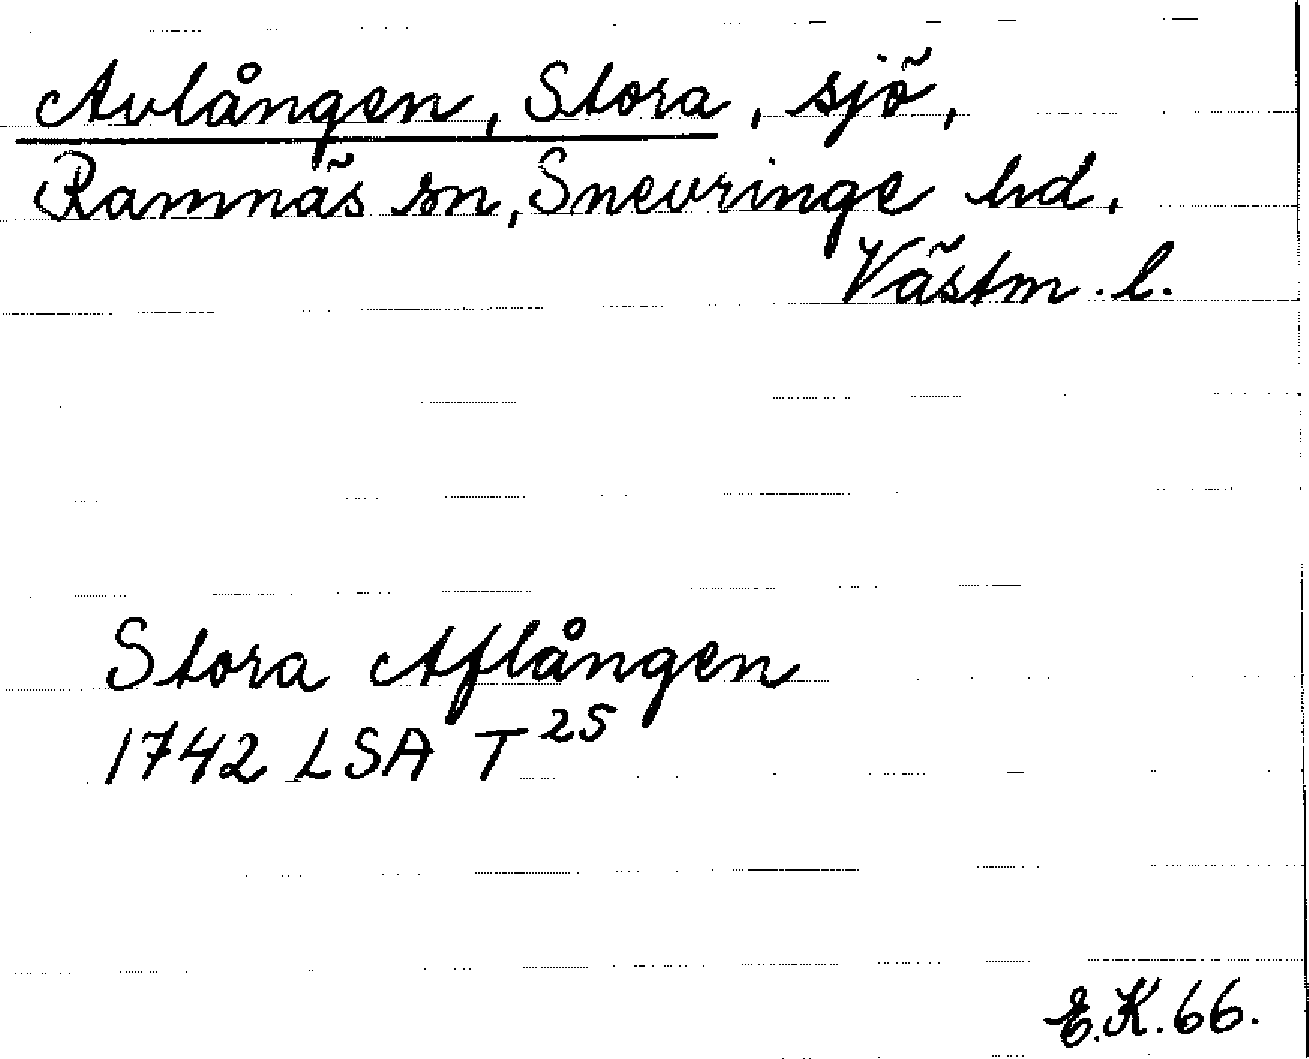 Avlången, Stora, sjö,
Ramnäs sn, Snevringe hd.
Västm. l.
Stora Aflången
1742 LSA T 25
E.K. 66.